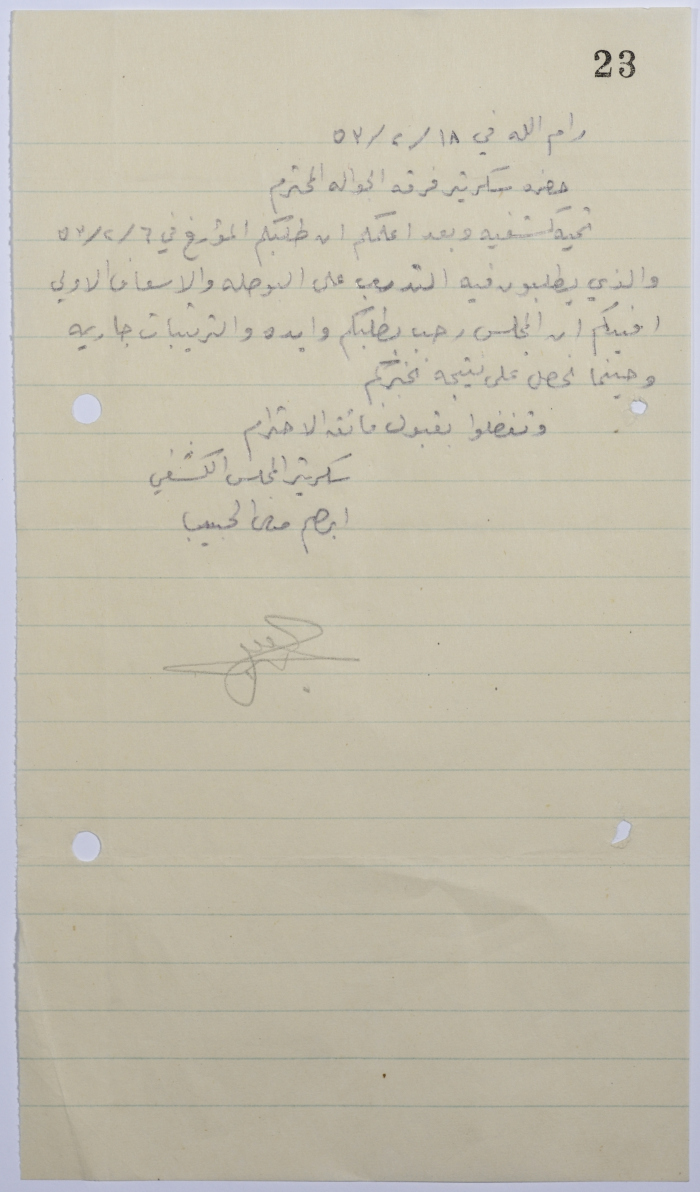 23
رام الله في ١٨/٢/٥٣
حضرة سكرتير فرقة الجوالة المحترم
تحية كشفية وبعد اعلمكم ان طلبكم المؤرخ في ٦/٢/٥٣
والذي يطلبون فيه التدريب على البوصله والاسعاف الاولي
افيدكم ان المجلس رحب بطلبكم وايده والترتيبات جاريه
وحينما نحصل على نتيجه نخبركم
وتفضلوا بقبول فائق الاحترام
سكرتير المجلس الكشفي
ابرهيم الحبيب